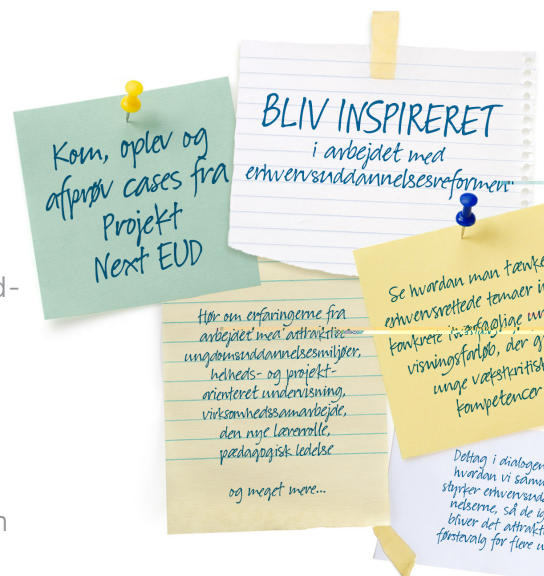 Kom, oplev og
afprøv cases fra
Projekt
Next EUD
BLIV INSPIRERET
i arbejdet med
erhvervsuddannelsesreformen
Hør om erfaringerne fra
arbejdet med attraktive
ungdomsuddannelsesmiljøer,
helheds- og projekt-
orienteret undervisning,
virksomhedssamarbejde,
den nye lærerrolle,
pædagogisk ledelse
og meget mere...
Se hvordan man tænke
erhvervsrettede temaer i
konkrete tværfaglige un
visningsforløb, der g
unge vækstkritisk
kompetencer
Deltag i dialogen
hvordan vi samm
styrker erhvervsudd
nelserne, så de ig
bliver det attrakti
førstevalg for flere u
d-
n